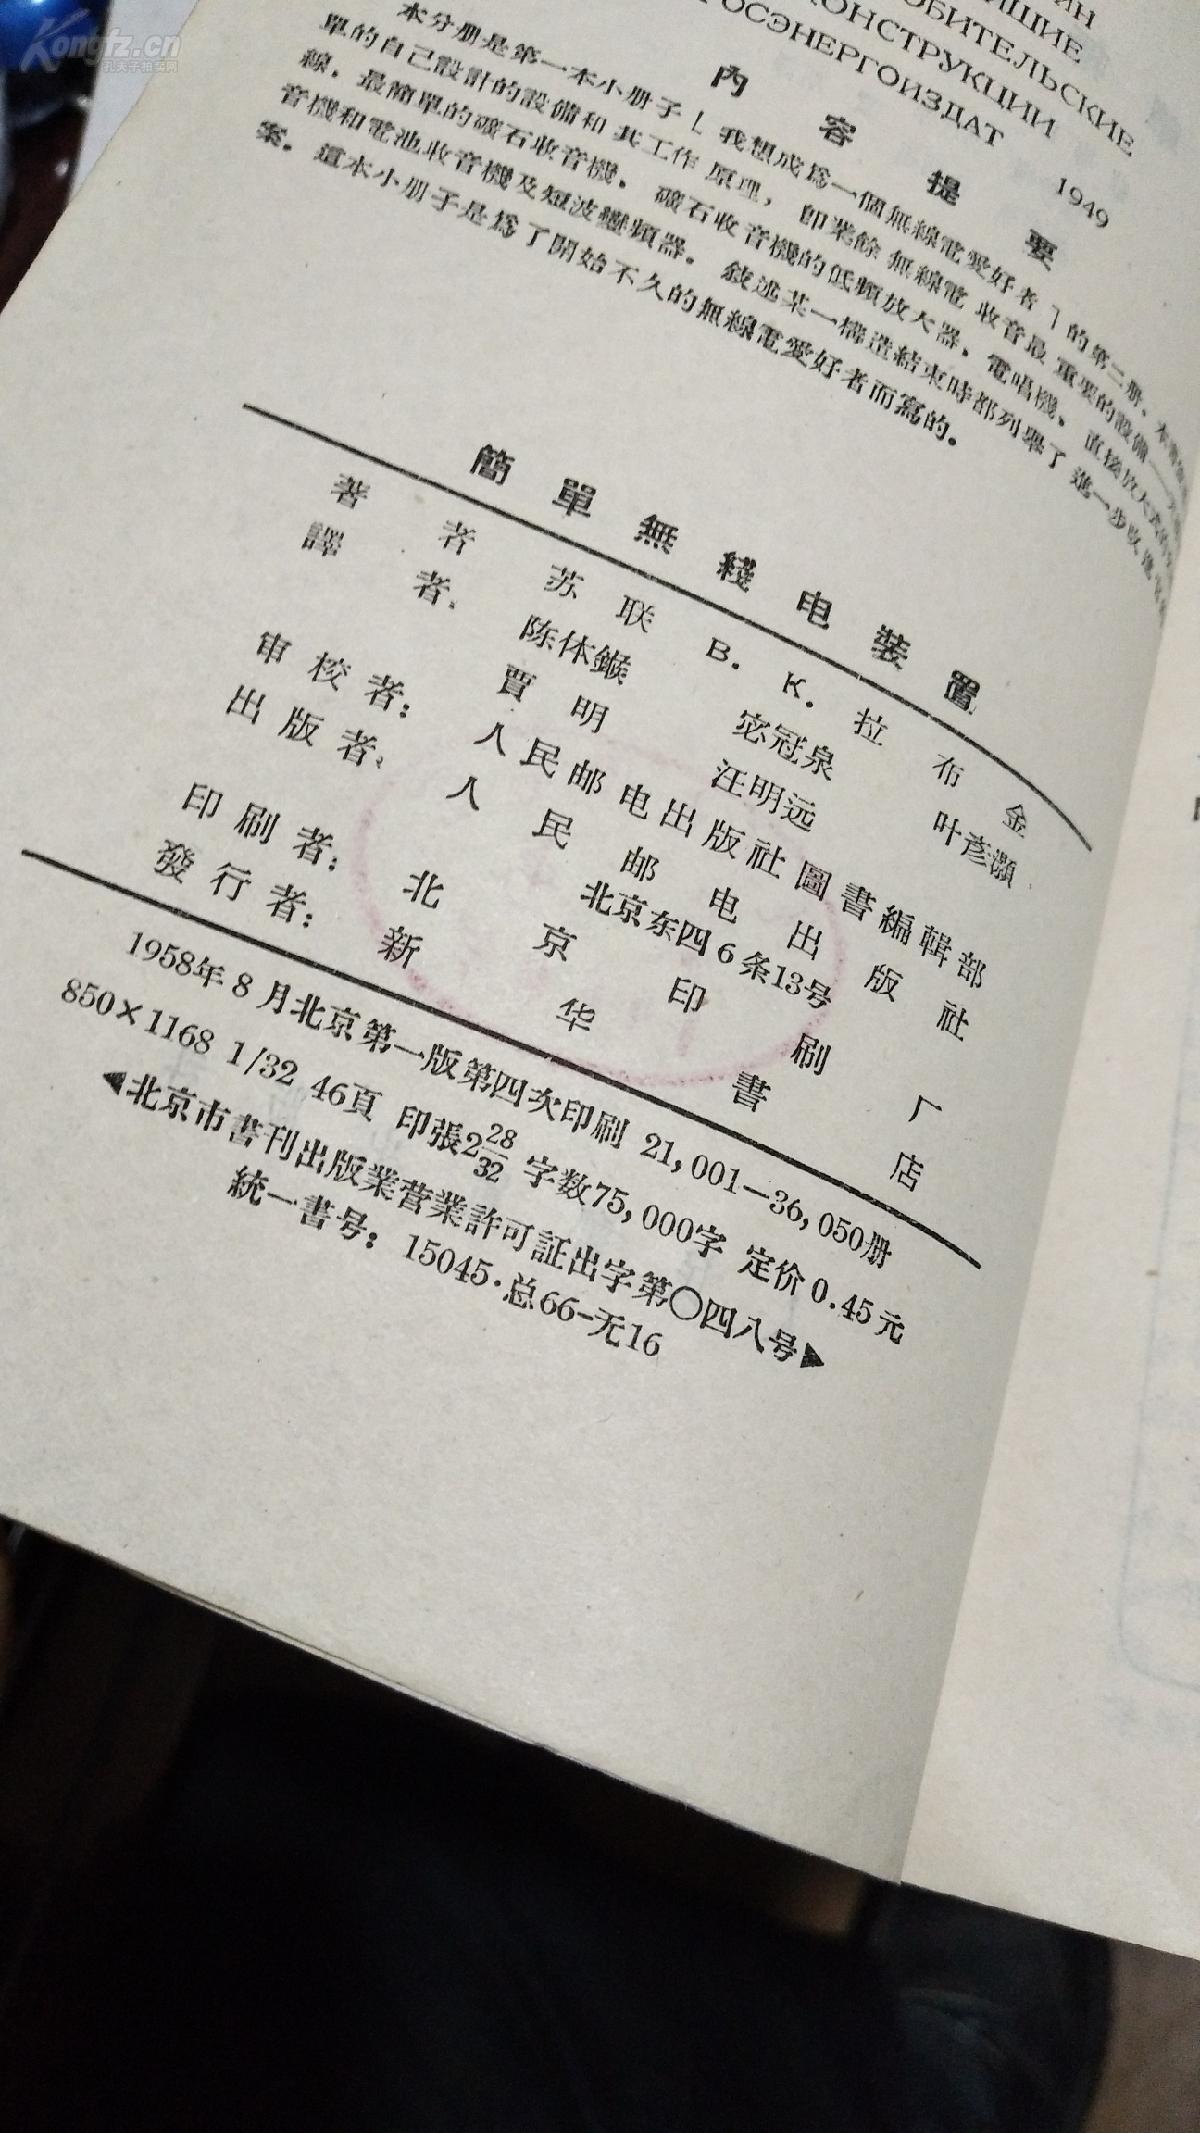 Kongfz.cn
孔夫子拍卖网
ИН
ЙШИЕ
ОБИТЕЛЬСКИЕ
КОНСТРУКЦИИ
ГОСЭНЕРГОИЗДАТ
1949
內容提要
本分册是第一本小册子「我想成爲一個無線電愛好者」的第二册。本書
單的自己設計的設備和其工作原理，卽業餘無線電收音最重要的設備——天
線，最簡單的礦石收音機。礦石收音機的低頻放大器。電唱機。直接放大式的
音機和電池收音機及短波變頻器。敍述某一構造結束時都列舉了進一步改進
案。這本小册子是爲了開始不久的無線電愛好者而寫的。
簡單無綫电裝置
著者 苏联 В. К. 拉布金
譯者. 陈体 宓冠泉 叶彦灝
审校者： 賈明 汪明远
人民邮电出版社圖書編輯部
出版者： 人民邮电出版社
北京东四6条13号
印刷者： 北京印刷厂
發行者： 新华書店
1958年8月北京第一版第四次印刷 21,001—36,050册
850×1168 1/32 46頁 印張2 28/32 字数75,000字 定价0.45元
◀北京市書刊出版業营業許可証出字第〇四八号▶
統一書号：15045·总66-无16